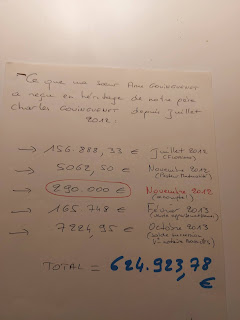 - Ce que ma soeur Anne GOUINGUENET
a reçu en héritage de notre père
Charles GOUINGUENET depuis Juillet
2012:
→ 156.888,33 € Juillet 2012
→ 5062,50 € Novembre 2012
→ 290.000 € Novembre 2012
→ 165 748 € Février 2013
→ 7224,95 € Octobre 2013
TOTAL = 624.923,78
€